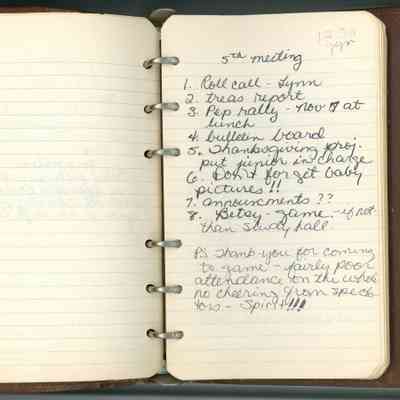 5th meeting
1. Roll call - Lynn
2. treas report
3. Pep rally - Nov 17 at
lunch
4. bulletin board
5. Thanksgiving proj.
put junior in charge
6. Don't forget baby
pictures!!
7. announcments ??
8. Betsy - game - if not
than study hall
PS Thank-you for coming
to game - fairly poor
attendance on the whole
no cheering from spect
tors - Spirit!!!